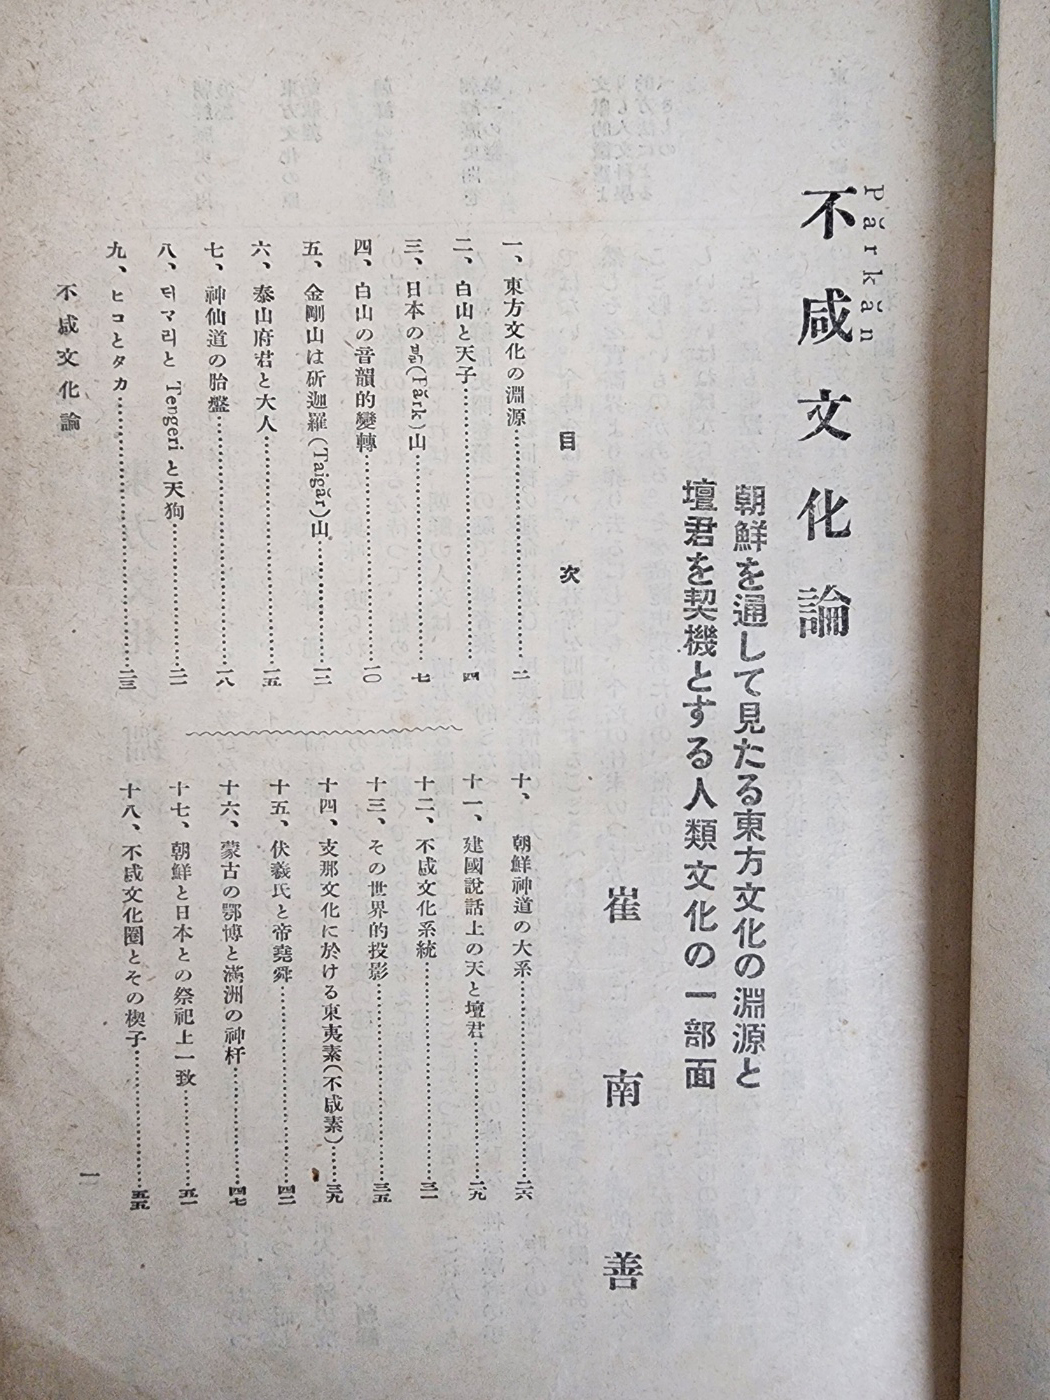 Părkăn
不咸文化論
朝鮮を通して見たる東方文化の淵源と
壇君を契機とする人類文化の一部面
崔南善
目次
一、東方文化の淵源……二
二、白山と天子……四
三、日本の붉(Părk)山……七
四、白山の音韻的變轉……一〇
五、金剛山は斫迦羅(Taigăr)山……一二
六、泰山府君と大人……一五
七、神仙道の胎盤……一八
八、더マリと Tengeri と天狗……二一
九、ヒコとタカ……二三
十、朝鮮神道の大系……二六
十一、建國說話上の天と壇君……二九
十二、不咸文化系統……三一
十三、その世界的投影……三五
十四、支那文化に於ける東夷素(不咸素)……三九
十五、伏羲氏と帝堯舜……四二
十六、蒙古の鄂博と滿洲の神杆……四七
十七、朝鮮と日本との祭祀上一致……五一
十八、不咸文化圈とその楔子……五五
不咸文化論
一